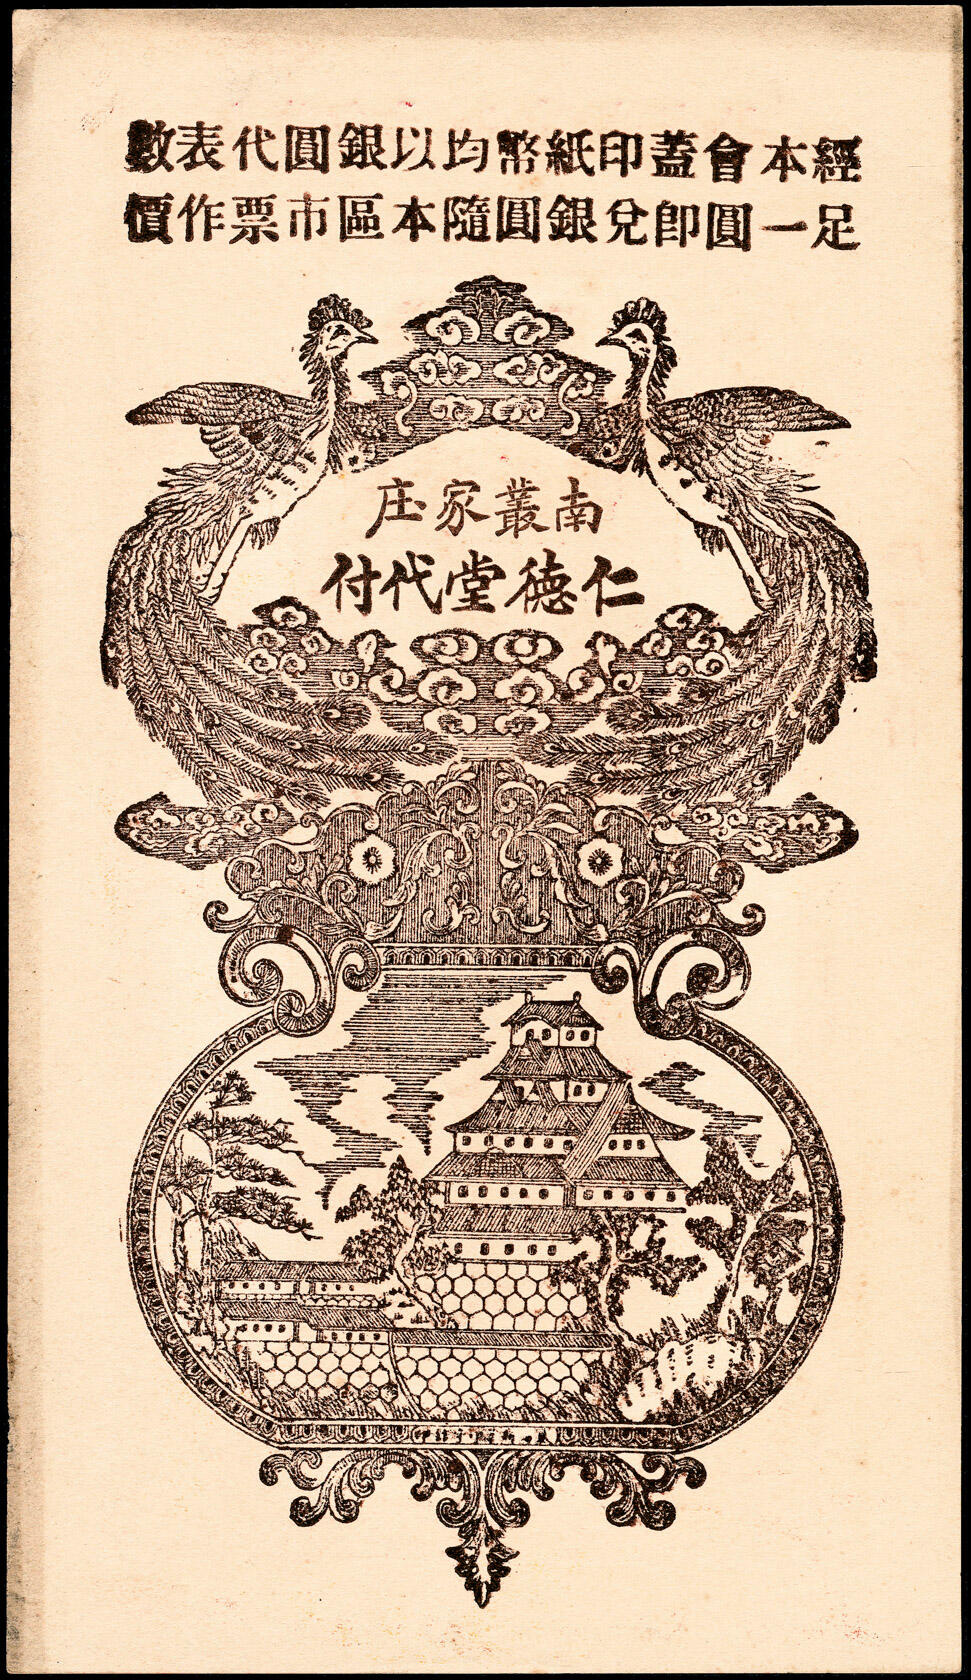 經本會蓋印紙幣均以銀圓代表數
足一圓即兌銀圓隨本區市票作價
南叢家庄
仁德堂代付